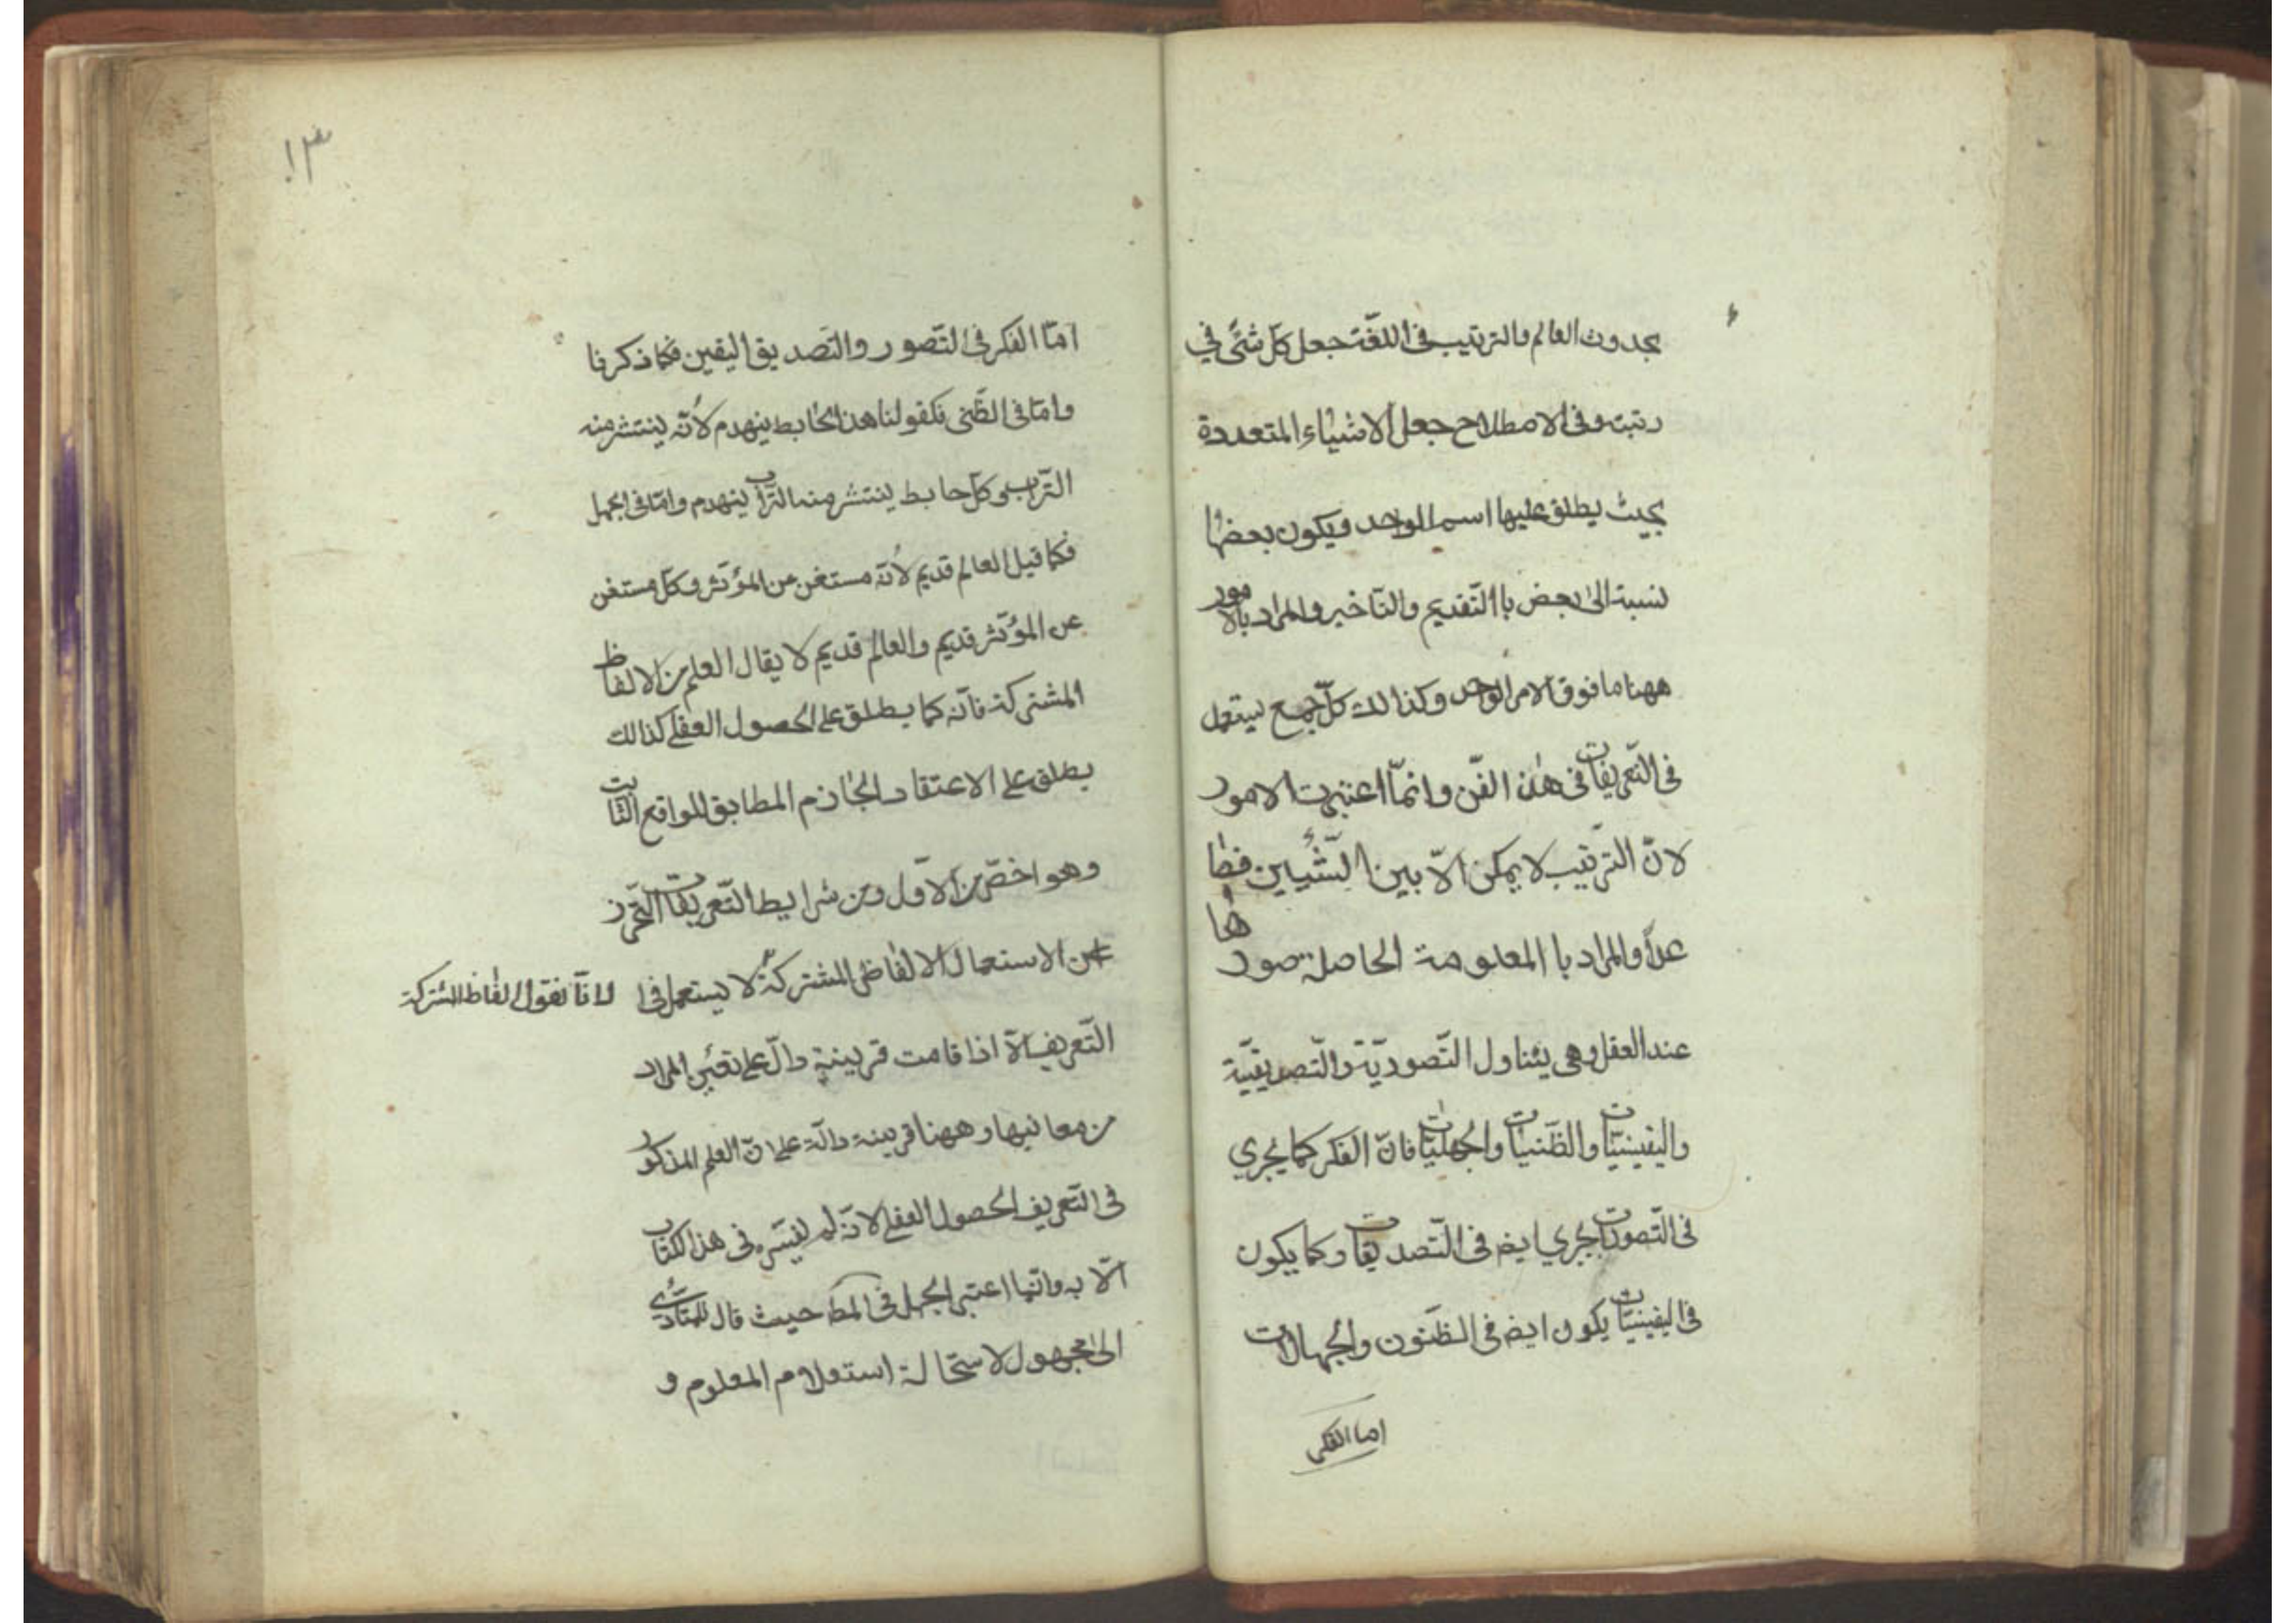 بحدوث العالم والترتيب فى اللغّة جعل كلّ شئ في
رتبته وفى الاصطلاح جعل الاشياء المتعددة
بحيث يطلق عليها اسم الواحد ويكون بعضها
نسبة الى بعض باالتّقديم والتّاخير والمراد بالامور
ههنا ما فوق الامر الواحد وكذالك كلّ جمع يستعمل
فى التّعريفات فى هذا الفّن وانمّا اعتبرت الامور
لانّ التّرتيب لا يمكن الاّ بين الشّيئين فصا
عداً والمراد باالمعلومة الحاصلة صورها
عند العقل وهى يتناول التّصوريّة والتّصديقيّة
واليقينيّات والظّنيات والجهليّات فانّ الفكر كما يجري
فى التّصورات يجري ايضه فى التّصديقات وكما يكون
فى اليقينيّات يكون ايضه فى الظنّون والجهالات
اما الفكر
١٣
امّا الفكر فى التّصور والتّصديق اليقين فكما ذكرنا
وامّا فى الظّنى فكقولنا هذا الحابط ينهدم لأنّه ينتشر منه
التّراب وكلّ حابط ينتشر منه التّراب ينهدم وامّا فى الجهل
فكما قيل العالم قديم لأنّه مستغن عن المؤثّر وكلّ مستغن
عن المؤثّر قديم والعالم قديم لا يقال العلم من الالفاظ
المشتركة فانّه كما يطلق على الحصول العقلى كذالك
يطلق على الاعتقاد الجازم المطابق للواقع الثّابت
وهو اخصّ من الاّول ومن شرايط التّعريفات التّحرّز
عن الاستعمال الالفاظ المشتركة لا يستعمل فى
لانّا نقول الفاظ المشتركة
التّعريفات الاّ اذا قامت قرينة دالّ على تعيّن المراد
من معانيها وههنا قرينة دالّة على انّ العلم المذكور
فى التّعريف الحصول العقلى لانّه لم يفسّره فى هذا الكتاب
الاّ به وانّما اعتبر الجهل فى المط حيث قال للتّأدّى
الى مجهول لاستحالة استعلام المعلوم و